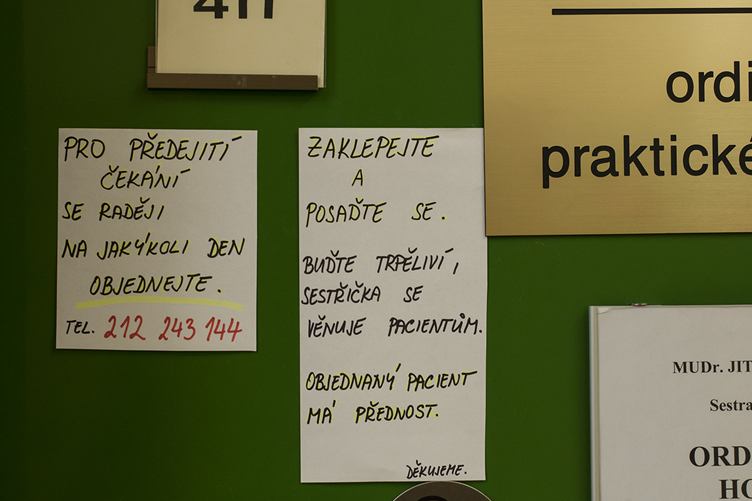 PRO PŘEDEJITÍ
ČEKÁNÍ
SE RADĚJI
NA JAKÝKOLI DEN
OBJEDNEJTE.
TEL. 212 243 144
ZAKLEPEJTE
A
POSAĎTE SE.
BUĎTE TRPĚLIVÍ,
SESTŘIČKA SE
VĚNUJE PACIENTŮM.
OBJEDNANÝ PACIENT
MÁ PŘEDNOST.
DĚKUJEME.
ordi
praktické
MUDr. JIT
Sestra
ORD
HO